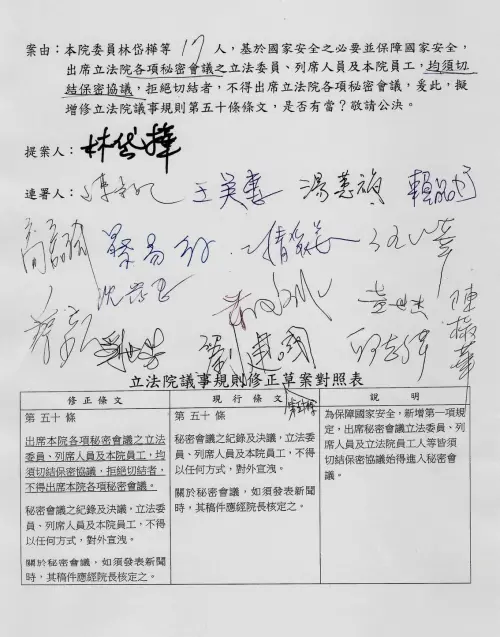 案由：本院委員林岱樺等17人，基於國家安全之必要並保障國家安全，
出席立法院各項秘密會議之立法委員、列席人員及本院員工，均須切
結保密協議，拒絕切結者，不得出席本院各項秘密會議，爰此，擬
增修立法院議事規則第五十條條文，是否有當？敬請公決。
提案人：林岱樺
連署人：王美惠 湯蕙禎 賴品妤
蔡易餘
沈發惠 黃世杰 陳椒華
劉建國 邱志偉
立法院議事規則修正草案對照表
修正條文 現行條文 說明
第五十條
出席本院各項秘密會議之立法
委員、列席人員及本院員工，均
須切結保密協議，拒絕切結者，
不得出席本院各項秘密會議。
秘密會議之紀錄及決議，立法委
員、列席人員及本院員工，不得
以任何方式，對外宣洩。
關於秘密會議，如須發表新聞
時，其稿件應經院長核定之。
第五十條
秘密會議之紀錄及決議，立法委
員、列席人員及本院員工，不得
以任何方式，對外宣洩。
關於秘密會議，如須發表新聞
時，其稿件應經院長核定之。
為保障國家安全，新增第一項規
定，出席秘密會議立法委員、列
席人員及立法院員工人等皆須
切結保密協議始得進入秘密會
議。